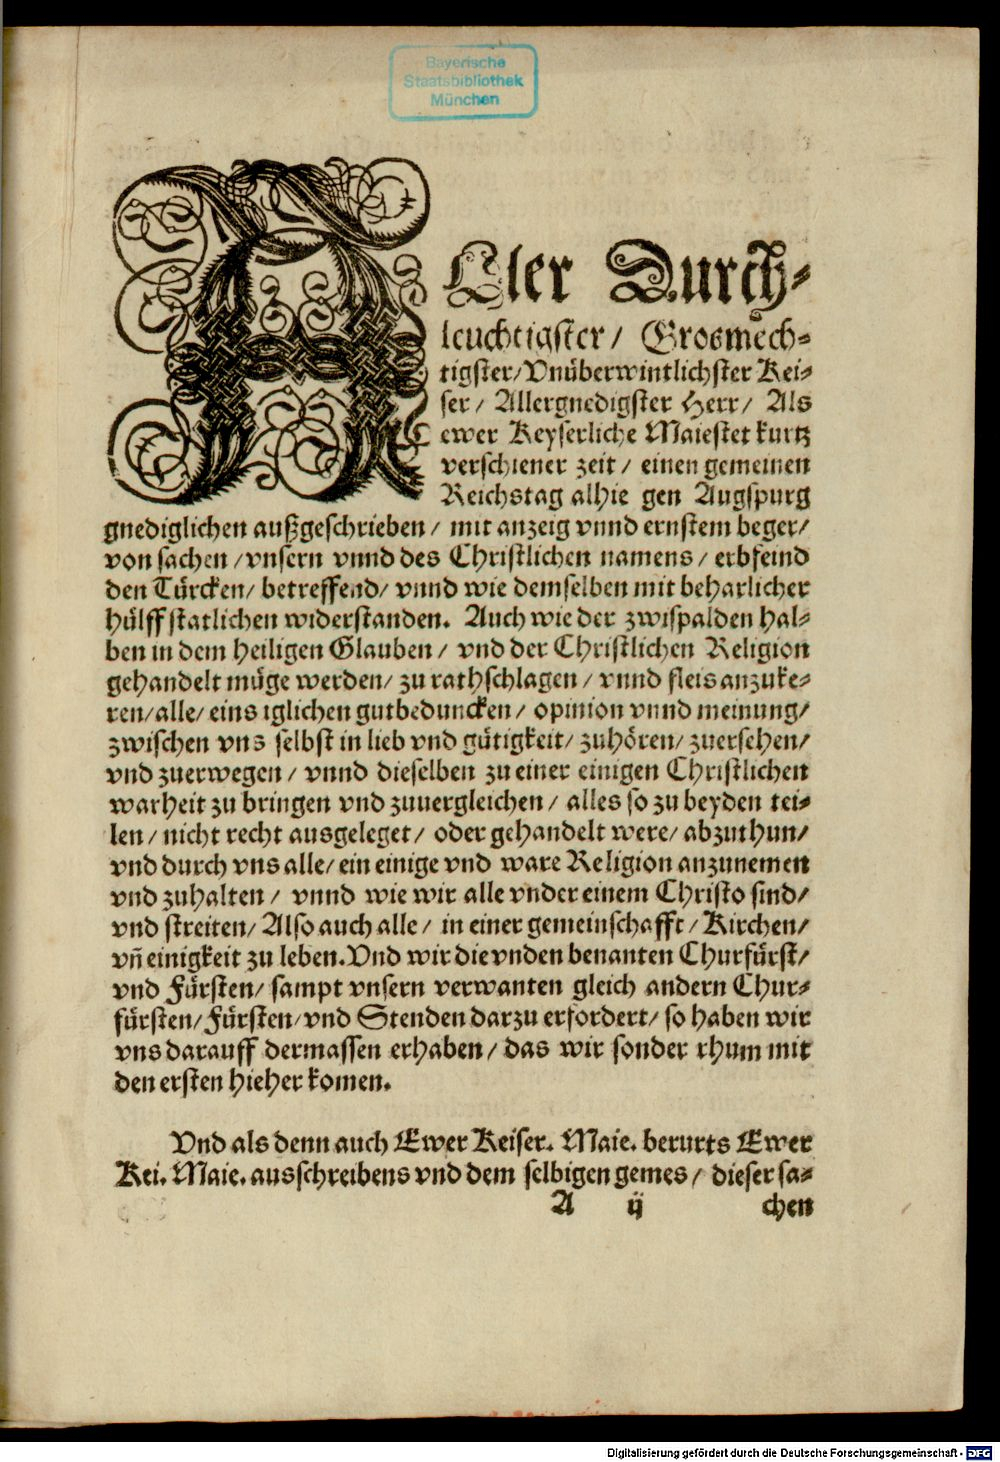 Bayerische
Staatsbibliothek
München
ALler Durch-
leuchtigster/ Grosmech-
tigster/ Vnüberwintlichster Kei-
ser/ Allergnedigster Herr/ Als
ewer Keyserliche Maiestet kurtz
verschiener zeit/ einen gemeinen
Reichstag alhie gen Augspurg
gnediglichen außgeschrieben/ mit anzeig vnnd ernstem beger/
von sachen/ vnsern vnnd des Christlichen namens/ erbfeind
den Türcken/ betreffend/ vnnd wie demselben mit beharlicher
hülff statlichen widerstanden. Auch wie der zwispalden hal-
ben in dem heiligen Glauben/ vnd der Christlichen Religion
gehandelt müge werden/ zu rathschlagen/ vnnd fleis anzuke-
ren/ alle/ eins iglichen gutbeduncken/ opinion vnnd meinung/
zwischen vns selbst in lieb vnd gütigkeit/ zuhören/ zuersehen/
vnd zuerwegen/ vnnd dieselben zu einer einigen Christlichen
warheit zu bringen vnd zuuergleichen/ alles so zu beyden tei-
len/ nicht recht ausgeleget/ oder gehandelt were/ abzuthun/
vnd durch vns alle/ ein einige vnd ware Religion anzunemen
vnd zuhalten/ vnnd wie wir alle vnder einem Christo sind/
vnd streiten/ Also auch alle/ in einer gemeinschafft/ Kirchen/
vñ einigkeit zu leben. Vnd wir die vnden benanten Churfürst/
vnd Fürsten/ sampt vnsern verwanten gleich andern Chur-
fürsten/ Fürsten/ vnd Stenden darzu erfordert/ so haben wir
vns darauff dermassen erhaben/ das wir sonder rhum mit
den ersten hieher komen.
Vnd als denn auch Ewer Keiser. Maie. berurts Ewer
Kei. Maie. ausschreibens vnd dem selbigen gemes/ dieser sa-
A ij chen
Digitalisierung gefördert durch die Deutsche Forschungsgemeinschaft - DFG